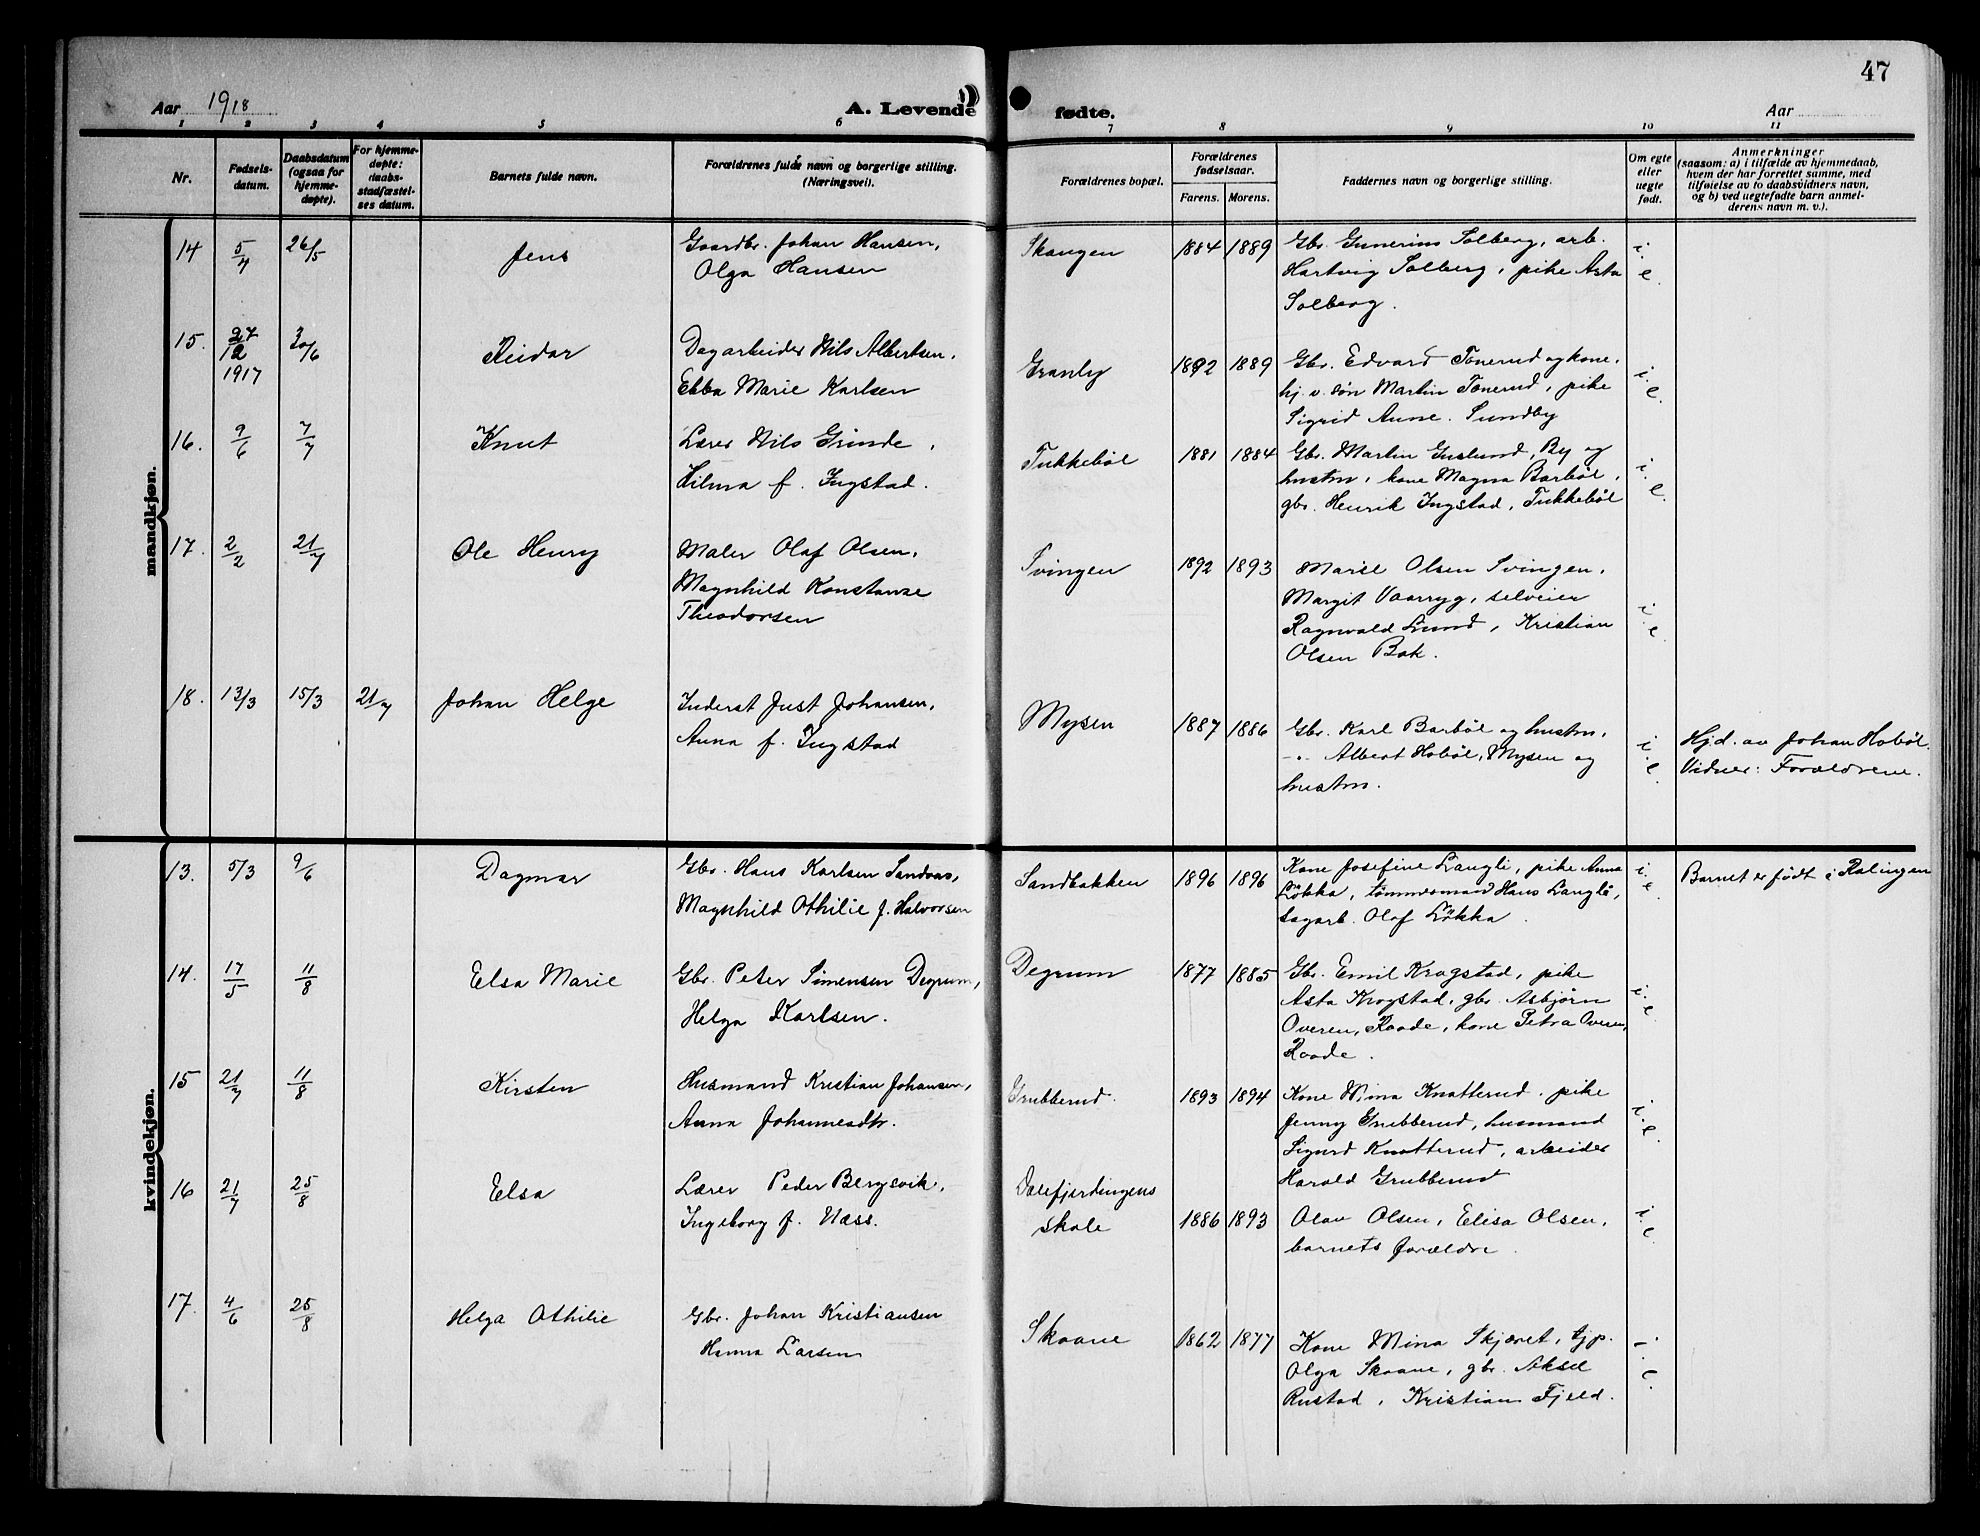 47
Aar 1918
A. Levende fødte.
Aar
1 2 3 4 5 6 7 8 9 10 11
Nr.
Fødsels-
datum.
Daabsdatum
(ogsaa for
hjemme-
døpte).
For hjemme-
døpte:
daabs-
stadfæstel-
ses datum.
Barnets fulde navn.
Forældrenes fulde navn og borgerlige stilling.
(Næringsvei).
Forældrenes bopæl.
Forældrenes
fødselsaar.
Farens. Morens.
Faddernes navn og borgerlige stilling.
Om egte
eller
uegte
født.
Anmerkninger
(saasom: a) i tilfælde av hjemmedaab,
hvem der har forrettet samme, med
tilføielse av to daabsvidners navn,
og b) ved uegtefødte barn anmel-
derens navn m. v.).
mandkjøn.
14 5/4 26/5 Jens
Gaardbr. Johan Hansen,
Olga Hansen
Skaugen 1884 1889
Gbr. Gunerius Solberg, arb.
Hartvig Solberg, pike Asta
Solberg.
i. e.
15. 27/12 1917 30/6 Reidar
Dagarbeider Nils Albertsen,
Ebba Marie Karlsen
Granly 1892 1889
Gbr. Edvard Tonerud og kone,
hj. v. søn Martin Tonerud, pike
Sigrid Anne. Sundby
i. e.
16. 9/6 7/7 Knut
Lærer Nils Grinde,
Hilma f. Ingstad.
Tukkebøl 1881 1884
Gbr. Martin Guslund, By og
hustru, kone Magna Barbøl,
gbr. Henrik Ingstad, Tukkebøl
i. e.
17. 2/2 21/7 Ole Henry
Maler Olaf Olsen,
Magnhild Konstanse
Theodorsen
Svingen 1892 1893
Marie Olsen Svingen,
Margit Vaarryg, selveier
Ragnvald Lund, Kristian
Olsen Bak.
i. e.
18. 13/3 15/3 21/7 Johan Helge
Inderst Just Johansen,
Anna f. Ingstad
Mysen 1887 1886
Gbr. Karl Barbøl og hustru,
-"- Albert Hobøl, Mysen og
hustru.
i. e.
Hjd. av Johan Hobøl.
Vidner: Forældrene.
kvindekjøn.
13. 5/3 9/6 Dagmar
Gbr. Hans Karlsen Sandaas,
Magnhild Othilie f. Halvorsen
Sandbakken 1896 1896
Kone Josefine Langli, pike Anna
Løkka, tømmermand Hans Langli,
sagarb. Olaf Løkka.
i. e.
Barnet er født i Rælingen
14. 17/5 11/8 Elsa Marie
Gbr. Peter Simensen Degrum,
Helga Karlsen.
Degrum 1877 1885
Gbr. Emil Krogstad, pike
Asta Krogstad, gbr. Asbjørn
Overen, Raade, kone Petra Overen,
Raade.
i. e.
15 21/7 11/8 Kirsten
Husmand Kristian Johansen,
Anna Johannesdtr.
Grubberud. 1893 1894
Kone Mina Knatterud, pike
Jenny Grubberud, husmand
Sigurd Knatterud, arbeider
Harald Grubberud
i. e.
16 21/7 25/8 Elsa
Lærer Peder Bergsvik,
Ingeborg f. Næss.
Dalefjerdingens
skole 1886 1893
Olav Olsen, Elisa Olsen,
barnets forældre.
i. e.
17. 4/6 25/8 Helga Othilie
Gbr. Johan Kristiansen
Hanna Larsen
Skaane 1862 1877
Kone Mina Skjæret, tjp.
Olga Skaane, gbr. Aksel
Rustad, Kristian Fjeld.
i. e.